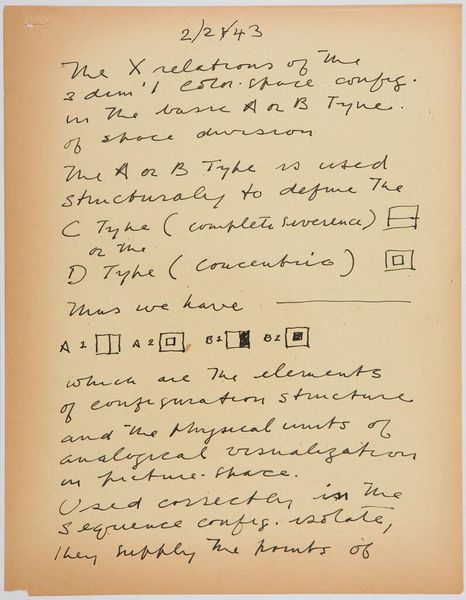 2/28/43
The X relations of the
3 dim'l color-space config.
in the basic A or B Type.
of space division
The A or B Type is used
structuraly to define The
C Type (complete severence)
or the
D Type (concentric)
Thus we have
A 1 A 2 B1 B2
which are the elements
of configuration structure
and the physical units of
analogical visualization
in picture-space.
Used correctly in The
sequence config. isolate,
they supply the points of